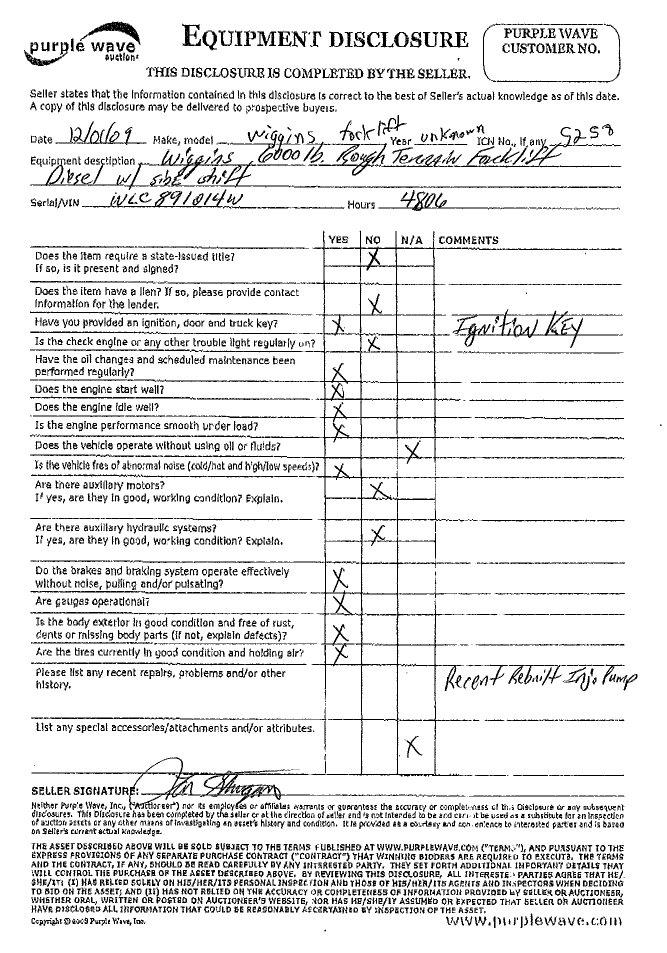 purple wave
auction®
EQUIPMENT DISCLOSURE
PURPLE WAVE
CUSTOMER NO.
THIS DISCLOSURE IS COMPLETED BY THE SELLER.
Seller states that the information contained in this disclosure is correct to the best of Seller's actual knowledge as of this date.
A copy of this disclosure may be delivered to prospective buyers.
Date 12/01/09 Make, model Wiggins forklift Year unknown ICN No., if any 5258
Equipment description Wiggins 6000 lb. Rough Terrain Forklift
Diesel w/ side shift
Serial/VIN WLC 891014W Hours 4806
YES NO N/A COMMENTS
Does the item require a state-issued title? X
If so, is it present and signed?
Does the item have a lien? If so, please provide contact
information for the lender. X
Have you provided an ignition, door and truck key? X Ignition Key
Is the check engine or any other trouble light regularly on? X
Have the oil changes and scheduled maintenance been
performed regularly? X
Does the engine start well? X
Does the engine idle well? X
Is the engine performance smooth under load? X
Does the vehicle operate without using oil or fluids? X
Is the vehicle free of abnormal noise (cold/hot and high/low speeds)? X
Are there auxiliary motors? X
If yes, are they in good, working condition? Explain.
Are there auxiliary hydraulic systems? X
If yes, are they in good, working condition? Explain.
Do the brakes and braking system operate effectively
without noise, pulling and/or pulsating? X
Are gauges operational? X
Is the body exterior in good condition and free of rust,
dents or missing body parts (if not, explain defects)? X
Are the tires currently in good condition and holding air? X
Please list any recent repairs, problems and/or other Recent Rebuilt Inj. Pump
history.
List any special accessories/attachments and/or attributes.
X
SELLER SIGNATURE:
Neither Purple Wave, Inc., ("Auctioneer") nor its employees or affiliates warrants or guarantees the accuracy or completeness of this Disclosure or any subsequent
disclosures. This Disclosure has been completed by the seller or at the direction of seller and is not intended to be and cannot be used as a substitute for an inspection
of auction assets or any other means of investigating an asset's history and condition. It is provided as a courtesy and convenience to interested parties and is based
on Seller's current actual knowledge.
THE ASSET DESCRIBED ABOVE WILL BE SOLD SUBJECT TO THE TERMS PUBLISHED AT WWW.PURPLEWAVE.COM ("TERMS"), AND PURSUANT TO THE
EXPRESS PROVISIONS OF ANY SEPARATE PURCHASE CONTRACT ("CONTRACT") THAT WINNING BIDDERS ARE REQUIRED TO EXECUTE. THE TERMS
AND THE CONTRACT, IF ANY, SHOULD BE READ CAREFULLY BY ANY INTERESTED PARTY. THEY SET FORTH ADDITIONAL IMPORTANT DETAILS THAT
WILL CONTROL THE PURCHASE OF THE ASSET DESCRIBED ABOVE. BY REVIEWING THIS DISCLOSURE, ALL INTERESTED PARTIES AGREE THAT HE/
SHE/IT: (1) HAS RELIED SOLELY ON HIS/HER/ITS PERSONAL INSPECTION AND THOSE OF HIS/HER/ITS AGENTS AND INSPECTORS WHEN DECIDING
TO BID ON THE ASSET; AND (II) HAS NOT RELIED ON THE ACCURACY OR COMPLETENESS OF INFORMATION PROVIDED BY SELLER OR AUCTIONEER,
WHETHER ORAL, WRITTEN OR POSTED ON AUCTIONEER'S WEBSITE, NOR HAS HE/SHE/IT ASSUMED OR EXPECTED THAT SELLER OR AUCTIONEER
HAVE DISCLOSED ALL INFORMATION THAT COULD BE REASONABLY ASCERTAINED BY INSPECTION OF THE ASSET.
Copyright © 2008 Purple Wave, Inc. www.purplewave.com